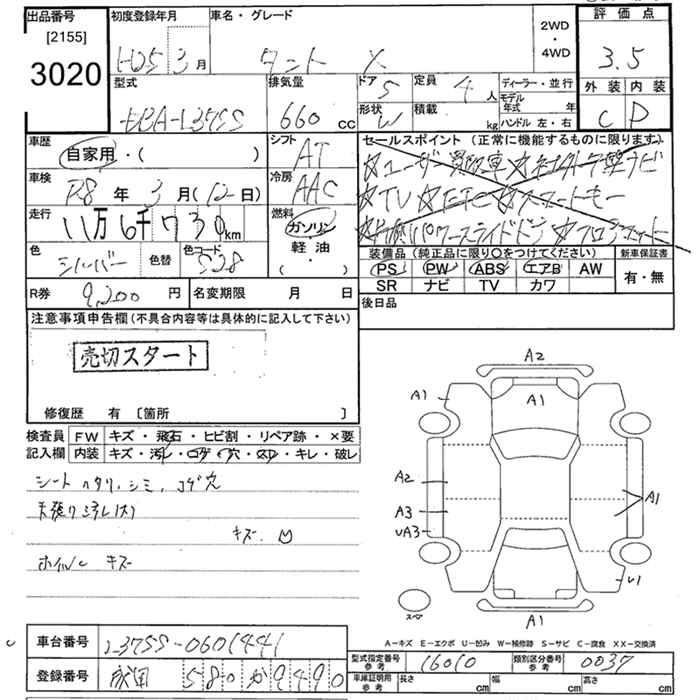 出品番号 初度登録年月 車名・グレード 2WD・4WD 評価点
[2155]
3020 H25 3月 タント X 3.5
型式 排気量 ドア 5 定員 4人 ディーラー・並行 外装 内装
モデル年式 年
L375S 660cc 形状 W 積載 kg ハンドル 左・右 C D
車歴 シフト セールスポイント (正常に機能するものに限ります)
自家用・( ) AT ☆ユーザー買取車☆
車検 R8年 3月(12日) 冷房 AAC ☆TV☆ETC☆スマートキー
走行 11万6千730km 燃料 ガソリン ☆パワースライドドア☆
軽油
・( )
色 シルバー 色替 色コード S28 装備品 (純正品に限り〇をつけてください) 新車保証書
PS PW ABS エアB AW 有・無
SR ナビ TV カワ
R券 9,200円 名変期限 月 日 後日品
注意事項申告欄(不具合内容等は具体的に記入して下さい)
売切スタート
修復歴 有 [箇所 ]
検査員記入欄 FW キズ・飛石・ヒビ割・リペア跡・×要
内装 キズ・汚レ・コゲ・穴・スレ・キレ・破レ
シート ヘタリ、シミ、コゲ穴
天張り汚レ(大)
キズ、凹
ホイール キズ
A2
A1
A1
A2
A3
UA3
A1
U1
A1
スペア
A－キズ E－エクボ U－凹み W－補修跡 S－サビ C－腐食 XX－交換済
車台番号 L375S-0601441
型式指定番号 参考 16010 類別区分番号 参考 0037
登録番号 成田 580 か 9490
車庫証明用 参考 長さ cm 幅 cm 高さ cm